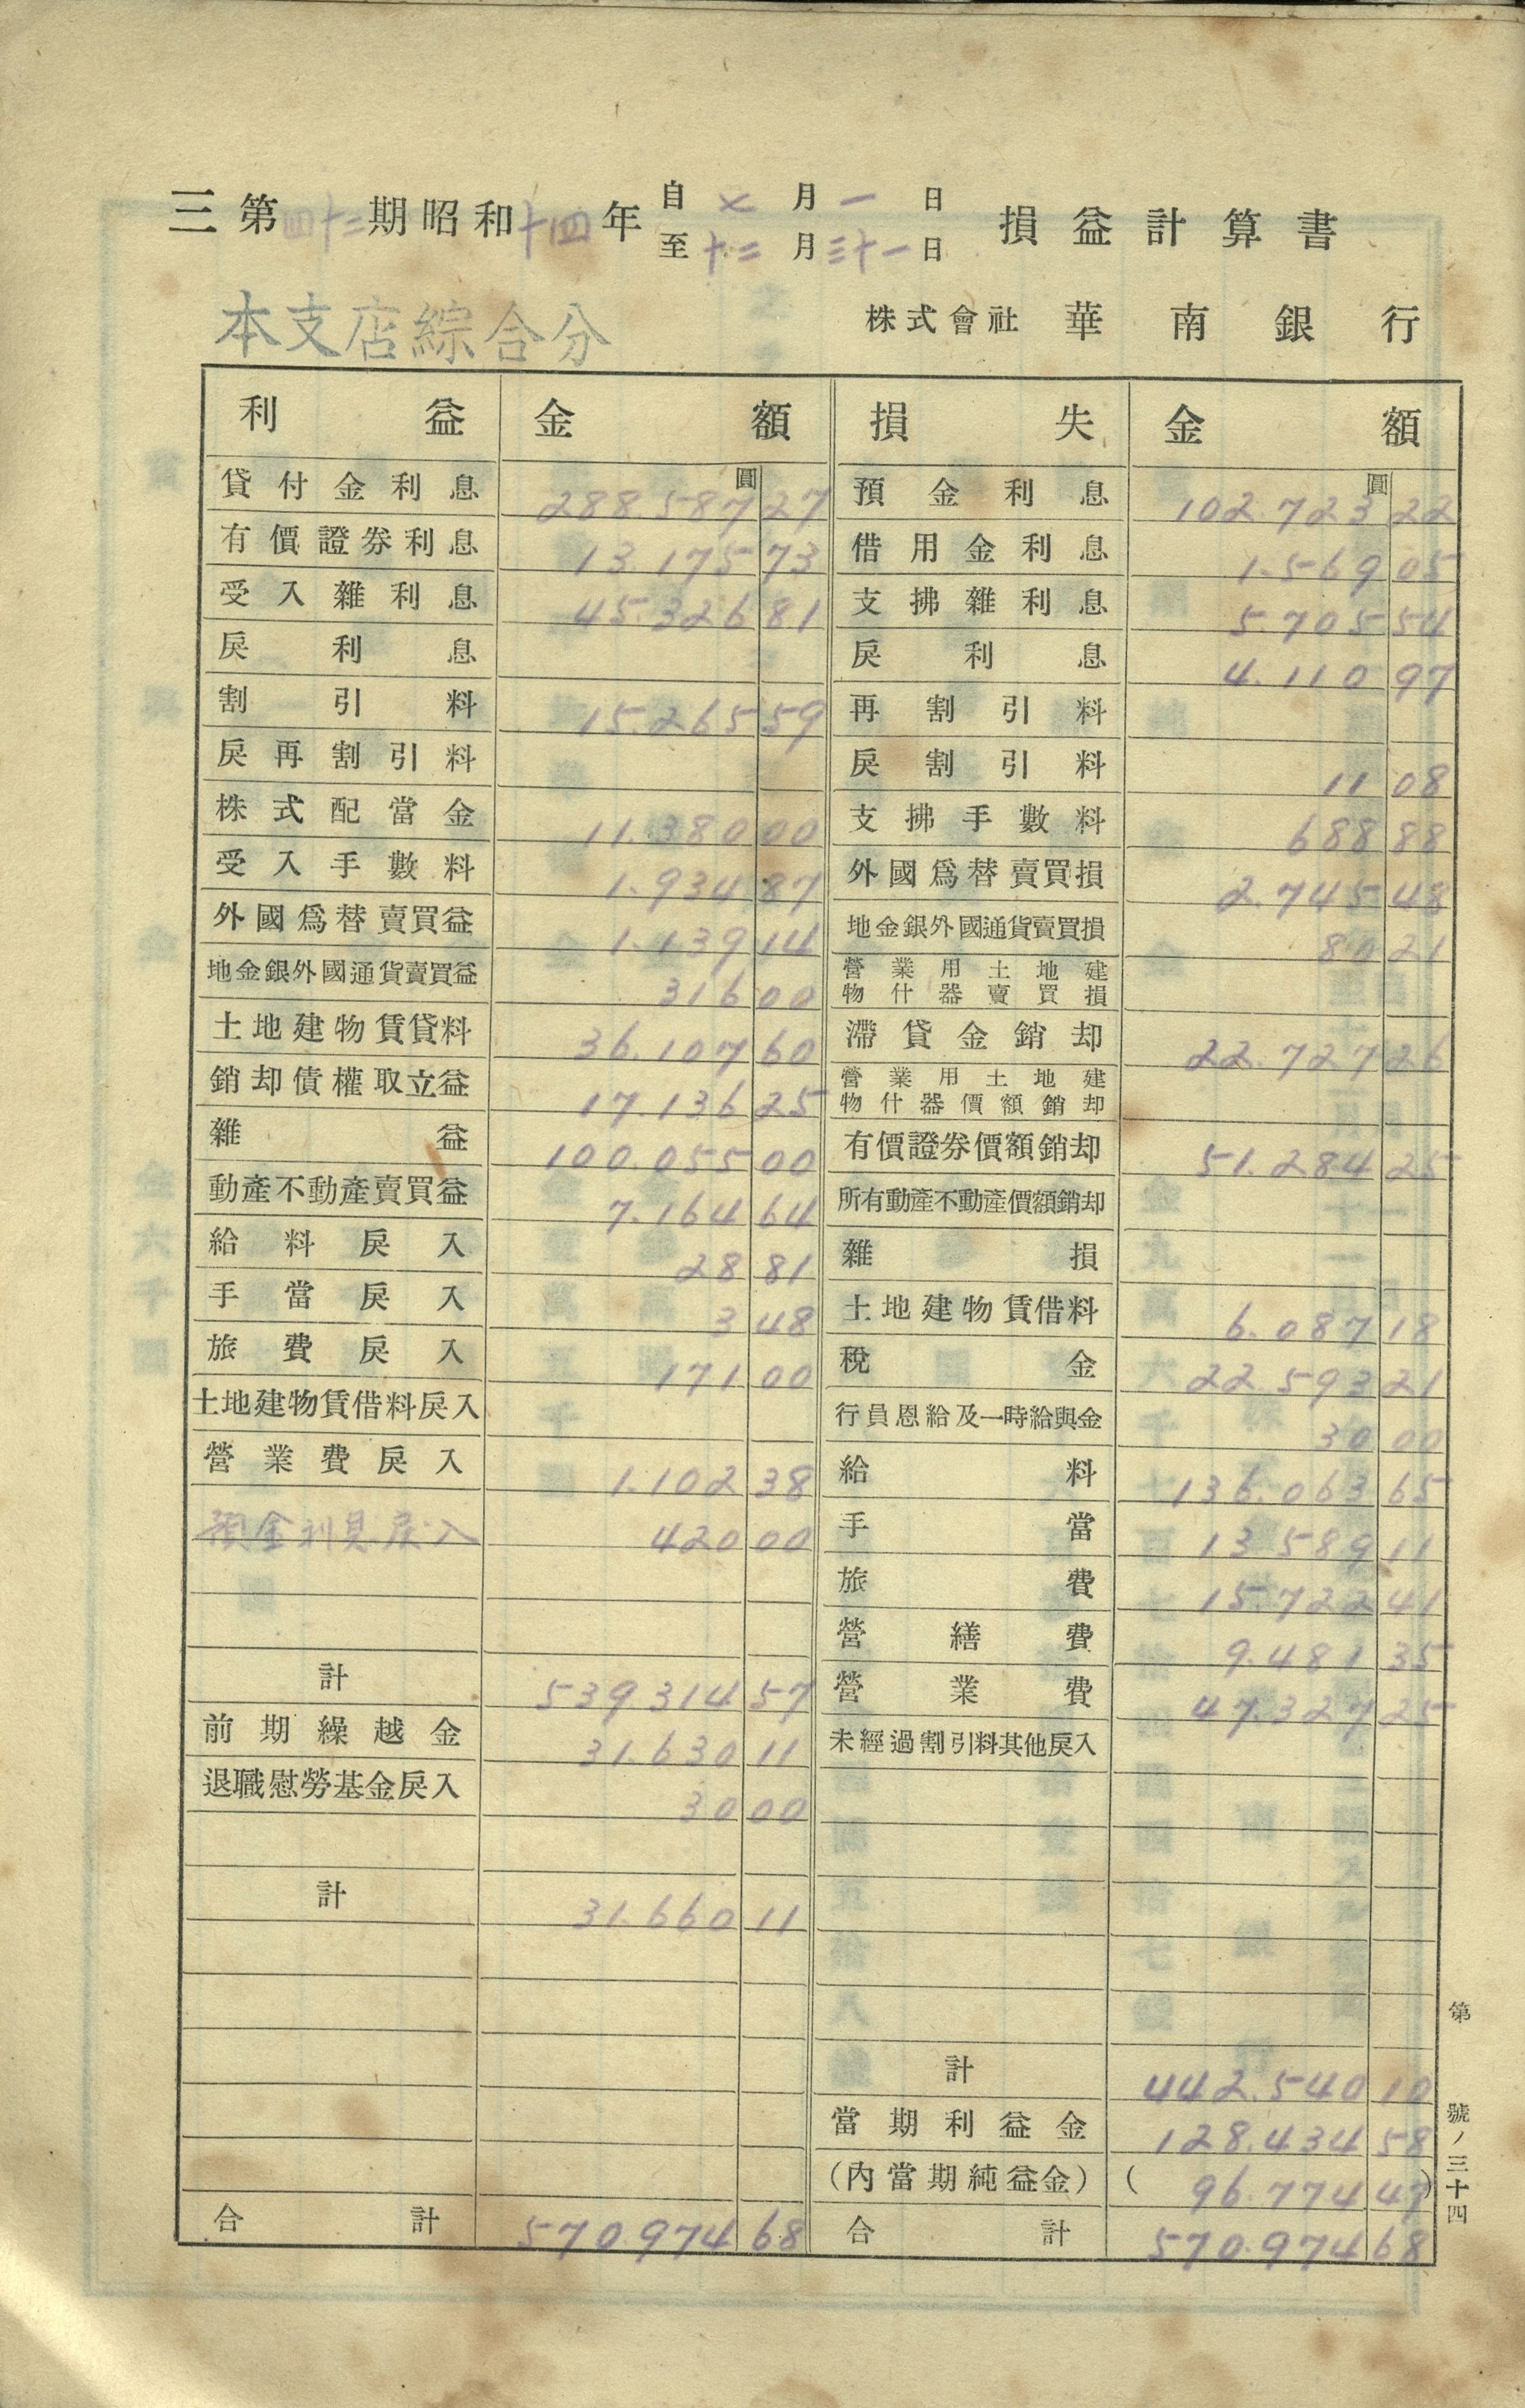 三 第四十二期昭和十四年 自七月一日 至十二月三十一日 損益計算書
本支店綜合分 株式會社 華南銀行
利益 金額 損失 金額
圓 圓
貸付金利息 288.587 27 預金利息 102.723 22
有價證券利息 13.175 73 借用金利息 1.569 05
受入雜利息 45.326 81 支拂雜利息 5.705 54
戾利息 戾利息 4.110 97
割引料 15.265 59 再割引料
戾再割引料 戾割引料 11 08
株式配當金 11.380 00 支拂手數料 688 88
受入手數料 1.934 87 外國爲替賣買損 2.745 48
外國爲替賣買益 1.139 14 地金銀外國通貨賣買損 80 21
地金銀外國通貨賣買益 316 00 營業用土地建物什器賣買損
土地建物賃貸料 36.107 60 滯貸金銷却 22.727 26
銷却債權取立益 17.136 25 營業用土地建物什器價額銷却
雜益 100.055 00 有價證券價額銷却 51.284 25
動產不動產賣買益 7.164 64 所有動產不動產價額銷却
給料戾入 28 81 雜損
手當戾入 3 48 土地建物賃借料 6.087 18
旅費戾入 171 00 稅金 22.593 21
土地建物賃借料戾入 行員恩給及一時給與金 30 00
營業費戾入 1.102 38 給料 136.063 65
預金利息戾入 420 00 手當 13.589 11
旅費 15.722 41
營繕費 9.481 35
計 539 314 57 營業費 47.327 25
前期繰越金 31.630 11 未經過割引料其他戾入
退職慰勞基金戾入 30 00
計 31.660 11
計 442.540 10
當期利益金 128.434 58
(內當期純益金) ( 96.774 47 )
合計 570.974 68 合計 570.974 68
第 號ノ三十四